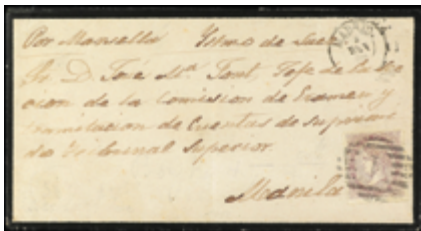 Por Marsella Istmo de Suez
Sr. D. José Mª Tout, Jefe de la Sec
cion de la Comision de Examen y
tramitacion de Cuentas de Supremo
de Tribunal Superior.
Manila